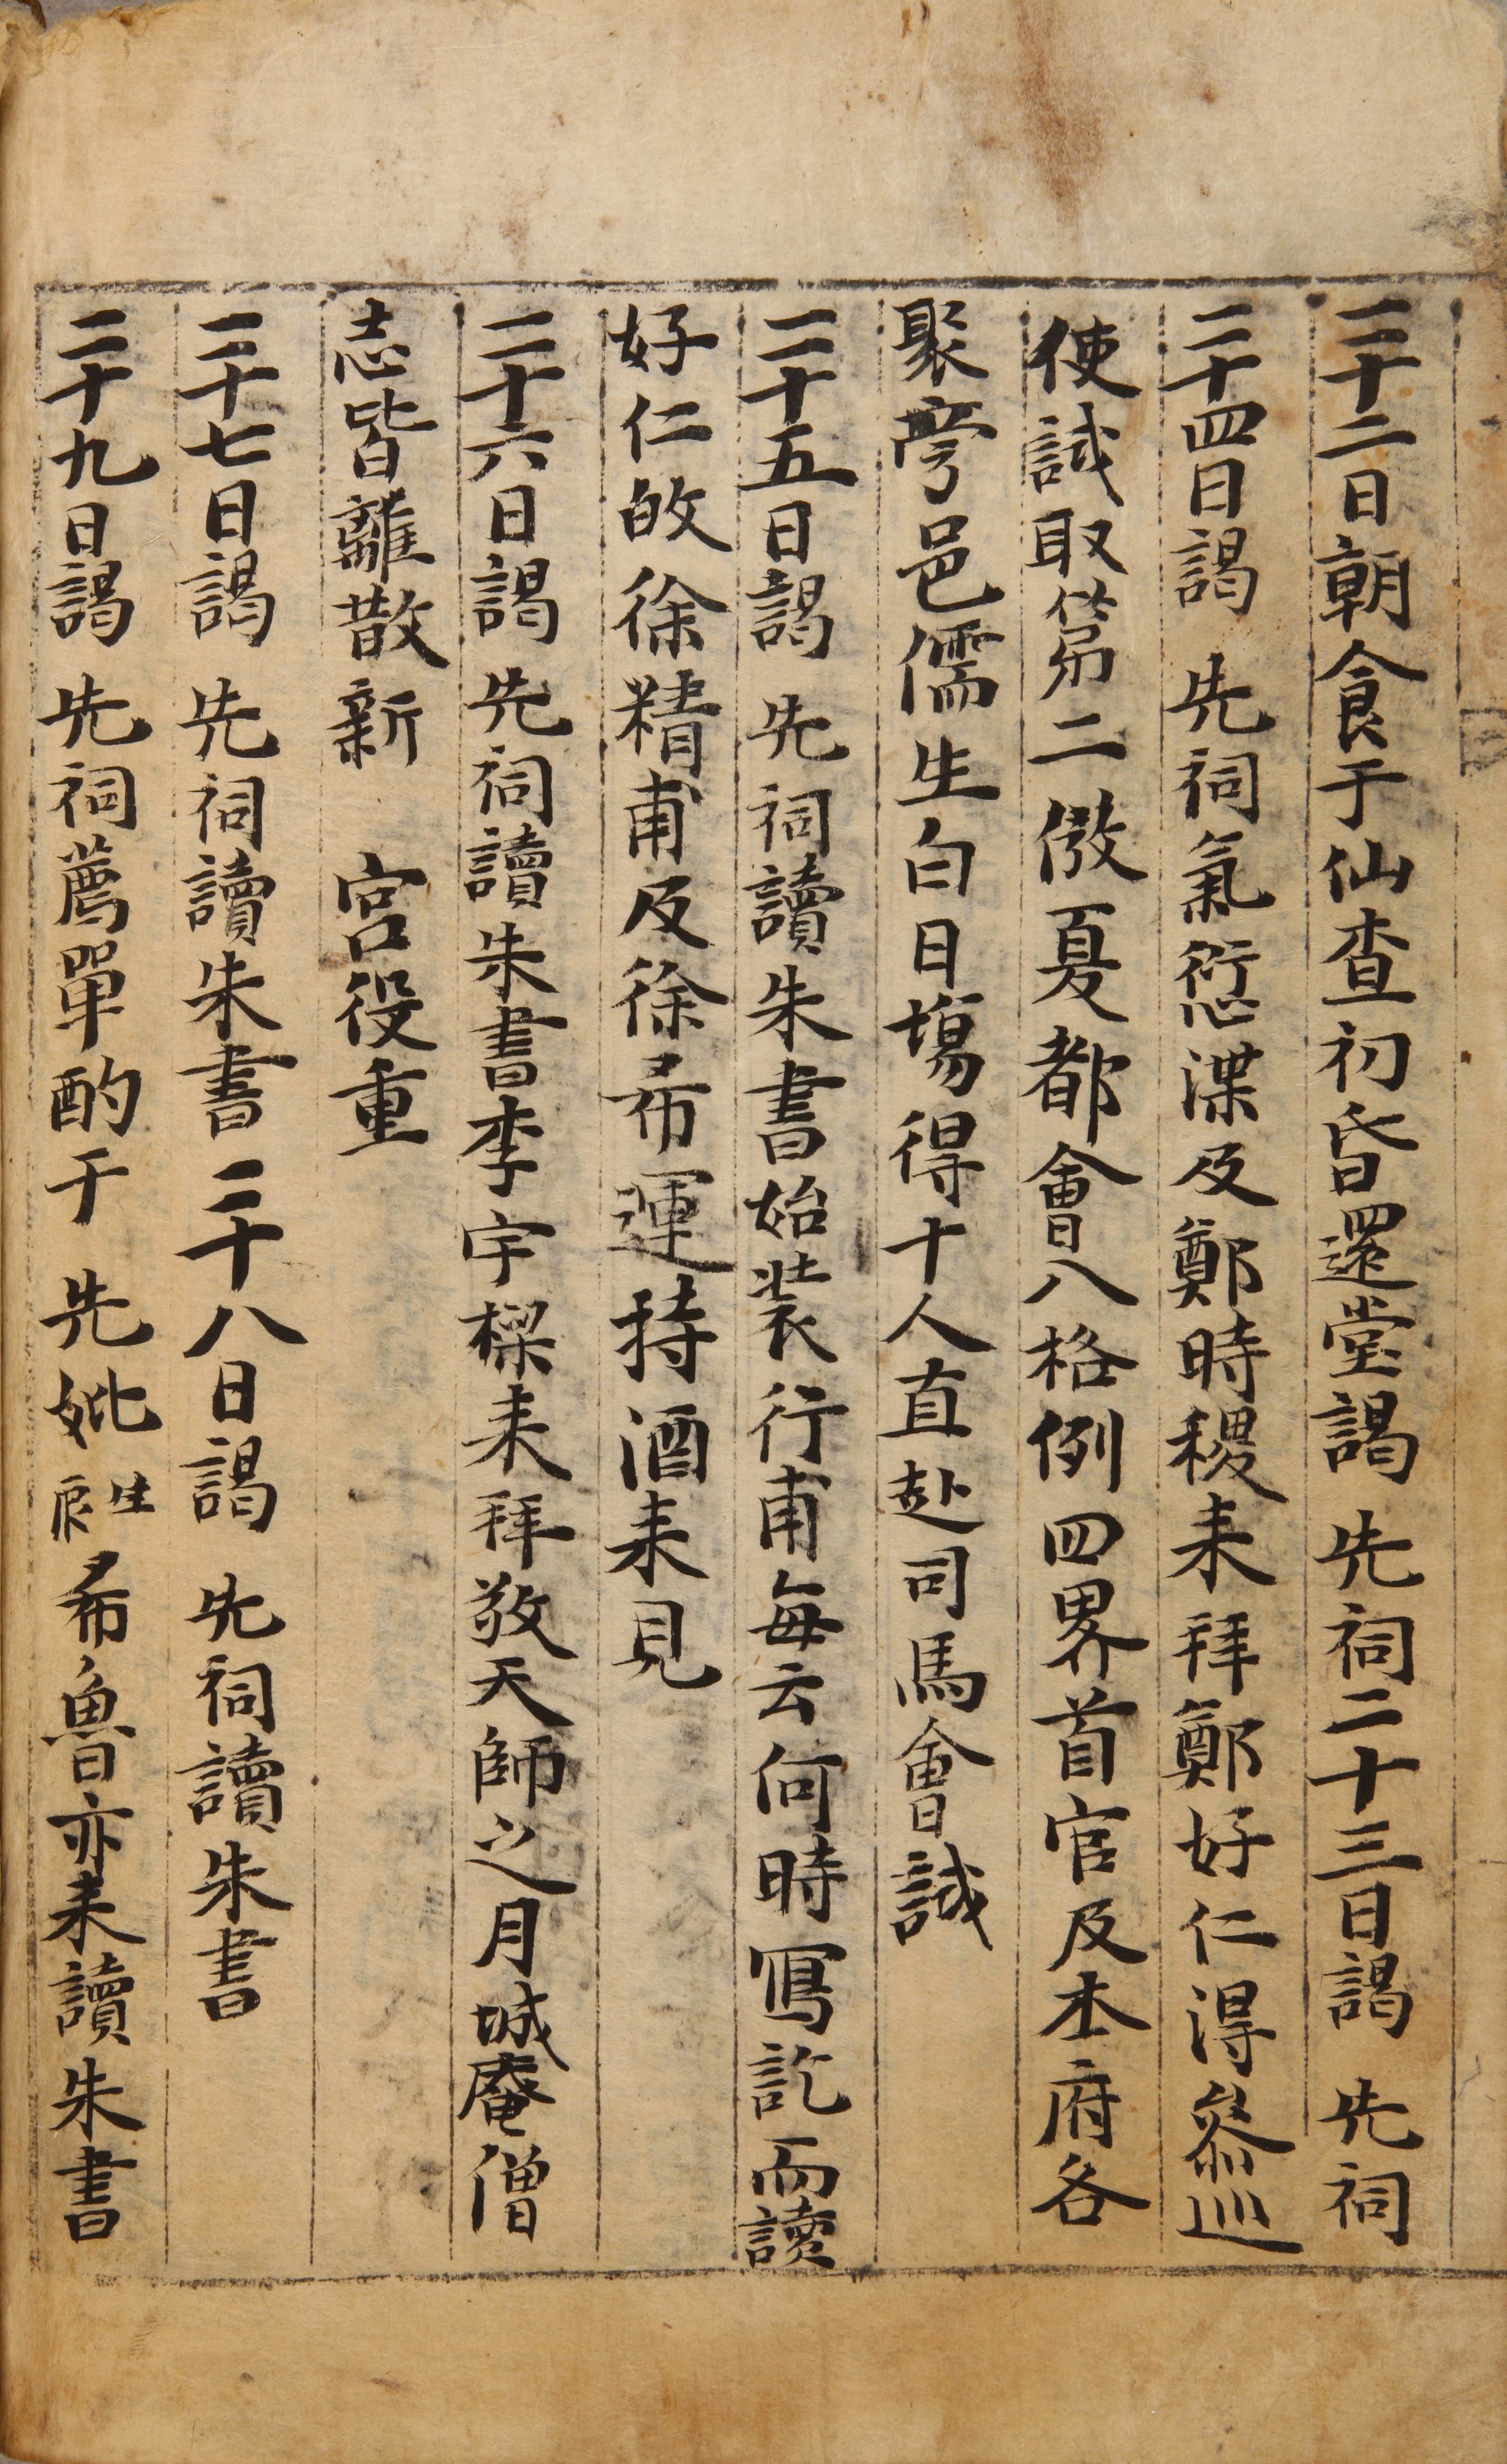 二十二日朝食于仙查初昏還堂謁 先祠二十三日謁 先祠
二十四日謁 先祠氣愆渫及鄭時稷来拜鄭好仁得叅巡
使試取第二倣夏都會八格例四界首官及本府各
聚旁邑儒生白日場得十人直赴司馬會試
二十五日謁 先祠讀朱書始装行甫每云何時寫訖而讀
好仁故徐精甫及徐希運持酒来見
二十六日謁 先祠讀朱書李宇樑来拜敬天師之月城庵僧
志皆離散新 宮役重
二十七日謁 先祠讀朱書二十八日謁 先祠讀朱書
二十九日謁 先祠薦單酌于 先妣生辰希魯亦来讀朱書